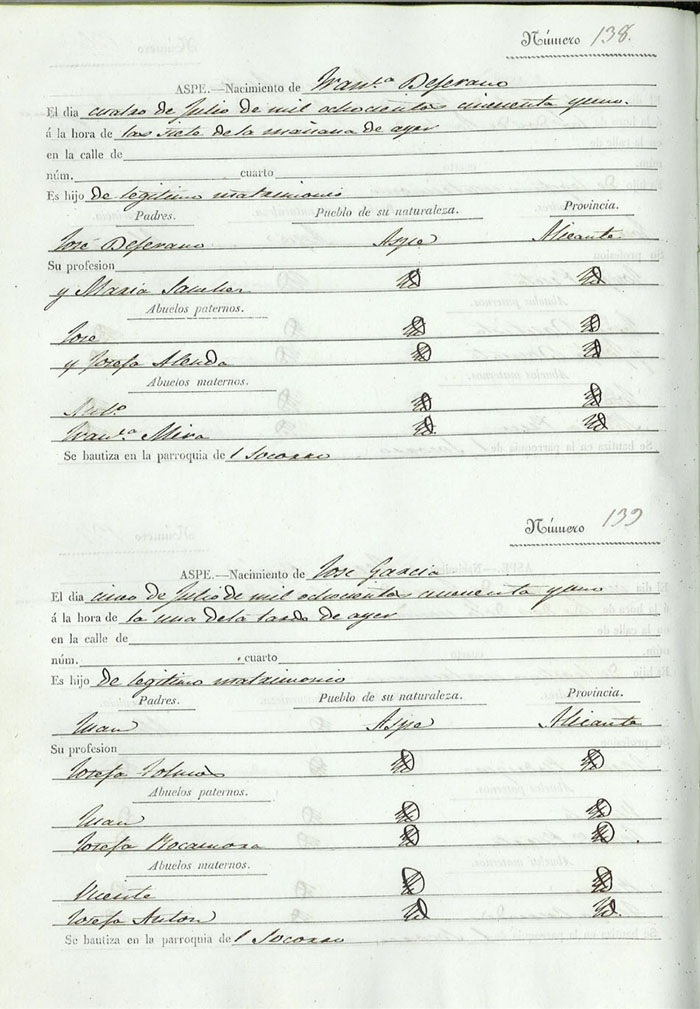 Número 138.
ASPE.—Nacimiento de Fran.ca Beferano
El dia cuatro de Julio de mil ochocientos cincuenta y uno.
á la hora de las siete de la mañana de ayer
en la calle de
núm. cuarto
Es hijo de legitimo matrimonio
Padres. Pueblo de su naturaleza. Provincia.
José Beferano Aspe Alicante
Su profesion
y Maria Sanchez Yd Yd
Abuelos paternos.
Jose Yd Yd
y Josefa Alenda Yd Yd
Abuelos maternos.
Ant.o Yd Yd
Fran.ca Mira Yd. Yd
Se bautiza en la parroquia de l Socorro
Número 139
ASPE.—Nacimiento de Jose Garcia
El dia cinco de Julio de mil ochocientos cincuenta y uno
á la hora de la una de la tarde de ayer
en la calle de
núm. cuarto
Es hijo de legitimo matrimonio
Padres. Pueblo de su naturaleza. Provincia.
Juan Aspe Alicante
Su profesion
Josefa Yd Yd
Abuelos paternos.
Juan Yd Yd
Josefa Rocamora Yd Yd
Abuelos maternos.
Vicente Yd Yd
Josefa Anton Yd Yd.
Se bautiza en la parroquia de l Socorro